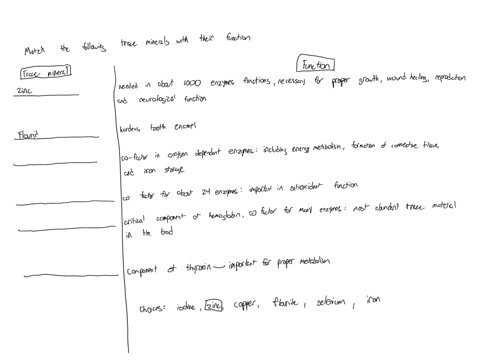 Match the following trace minerals with their function
Trace mineral
Function
zinc
needed in about 1000 enzymes functions, necessary for proper growth, wound healing, reproduction
and neurological function
Fluorid
hardens tooth enamel
co-factor in oxygen dependent enzymes: including energy metabolism, formation of connective tissue,
and iron storage
co factor for about 24 enzymes: important in antioxidant function
critical component of hemoglobin, co factor for many enzymes: most abundant trace material
in the bod
component of thyroxin - important for proper metabolism
choices: iodine, zinc, copper, fluoride, selenium, iron